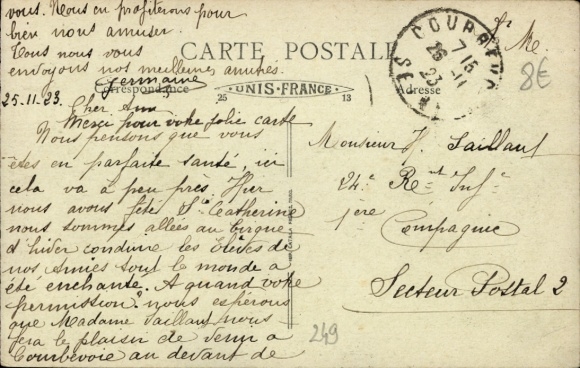 vous. Nous en profiterons pour
bien nous amuser.
Tous nous vous
envoyons nos meilleures amitiés.
Germaine
CARTE POSTALE
Correspondance
25 UNIS-FRANCE 13
Adresse
COURBEVOIE
7 15
25 -11
23
F. M.
8€
25.11.23.
Cher Ami
Merci pour votre jolie carte
Nous pensons que vous
êtes en parfaite santé, ici
cela va à peu près. Hier
nous avons fêté Ste Catherine
nous sommes allées au cirque
d'hiver conduire les Elèves de
nos Amies tout le monde a
été enchanté. A quand votre
permission? nous espérons
que Madame Saillant nous
fera le plaisir de venir à
Courbevoie au devant de
Monsieur Saillant
24e Rent Infie
1ère
Compagnie
Secteur Postal 2
249